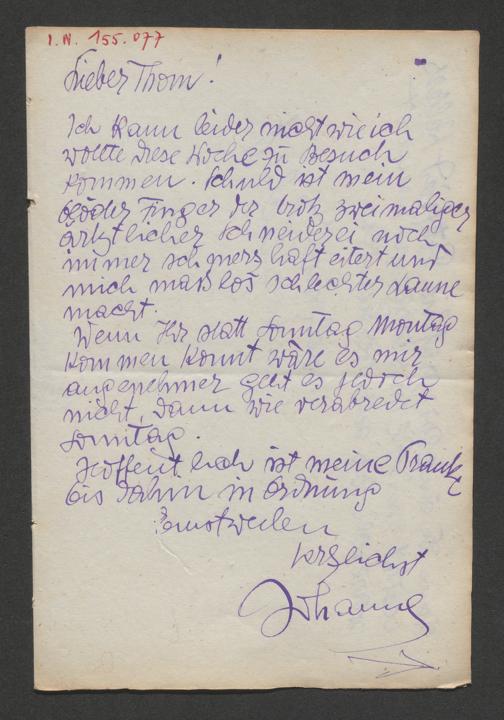 I. N. 155.077
Lieber Thom!
Ich kann leider nicht wie ich
wollte diese Woche zu Besuch
kommen. Schuld ist mein
blöder Finger der trotz zweimaliger
ärztlicher Schneiderei noch
immer schmerzhaft eitert und
mich maßlos schlechter Laune
macht.
Wenn Ihr statt Sonntag Montag
kommen könnt wäre es mir
angenehmer geht es jedoch
nicht, dann wie verabredet
Sonntag.
Hoffentlich ist meine
bis dahin in Ordnung
Einstweilen
herzlichst